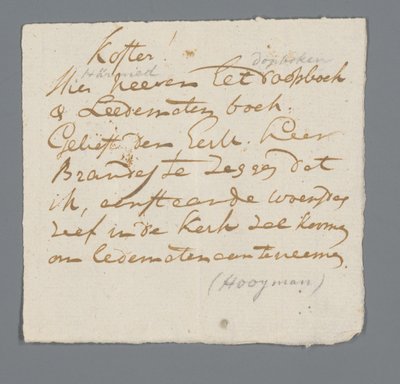 Koster!
Hier neven het doopboek
& Leedematen boek.
Gelieft den Eerw. heer
Brandes te zeggen dat
ik, eerstaande woensdag
zelf in de Kerk zal komen
om ledematen aan te neemen.
(Hooyman)